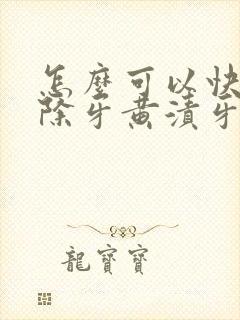 怎麼可以快
除牙黄漬牙
龍寶寶